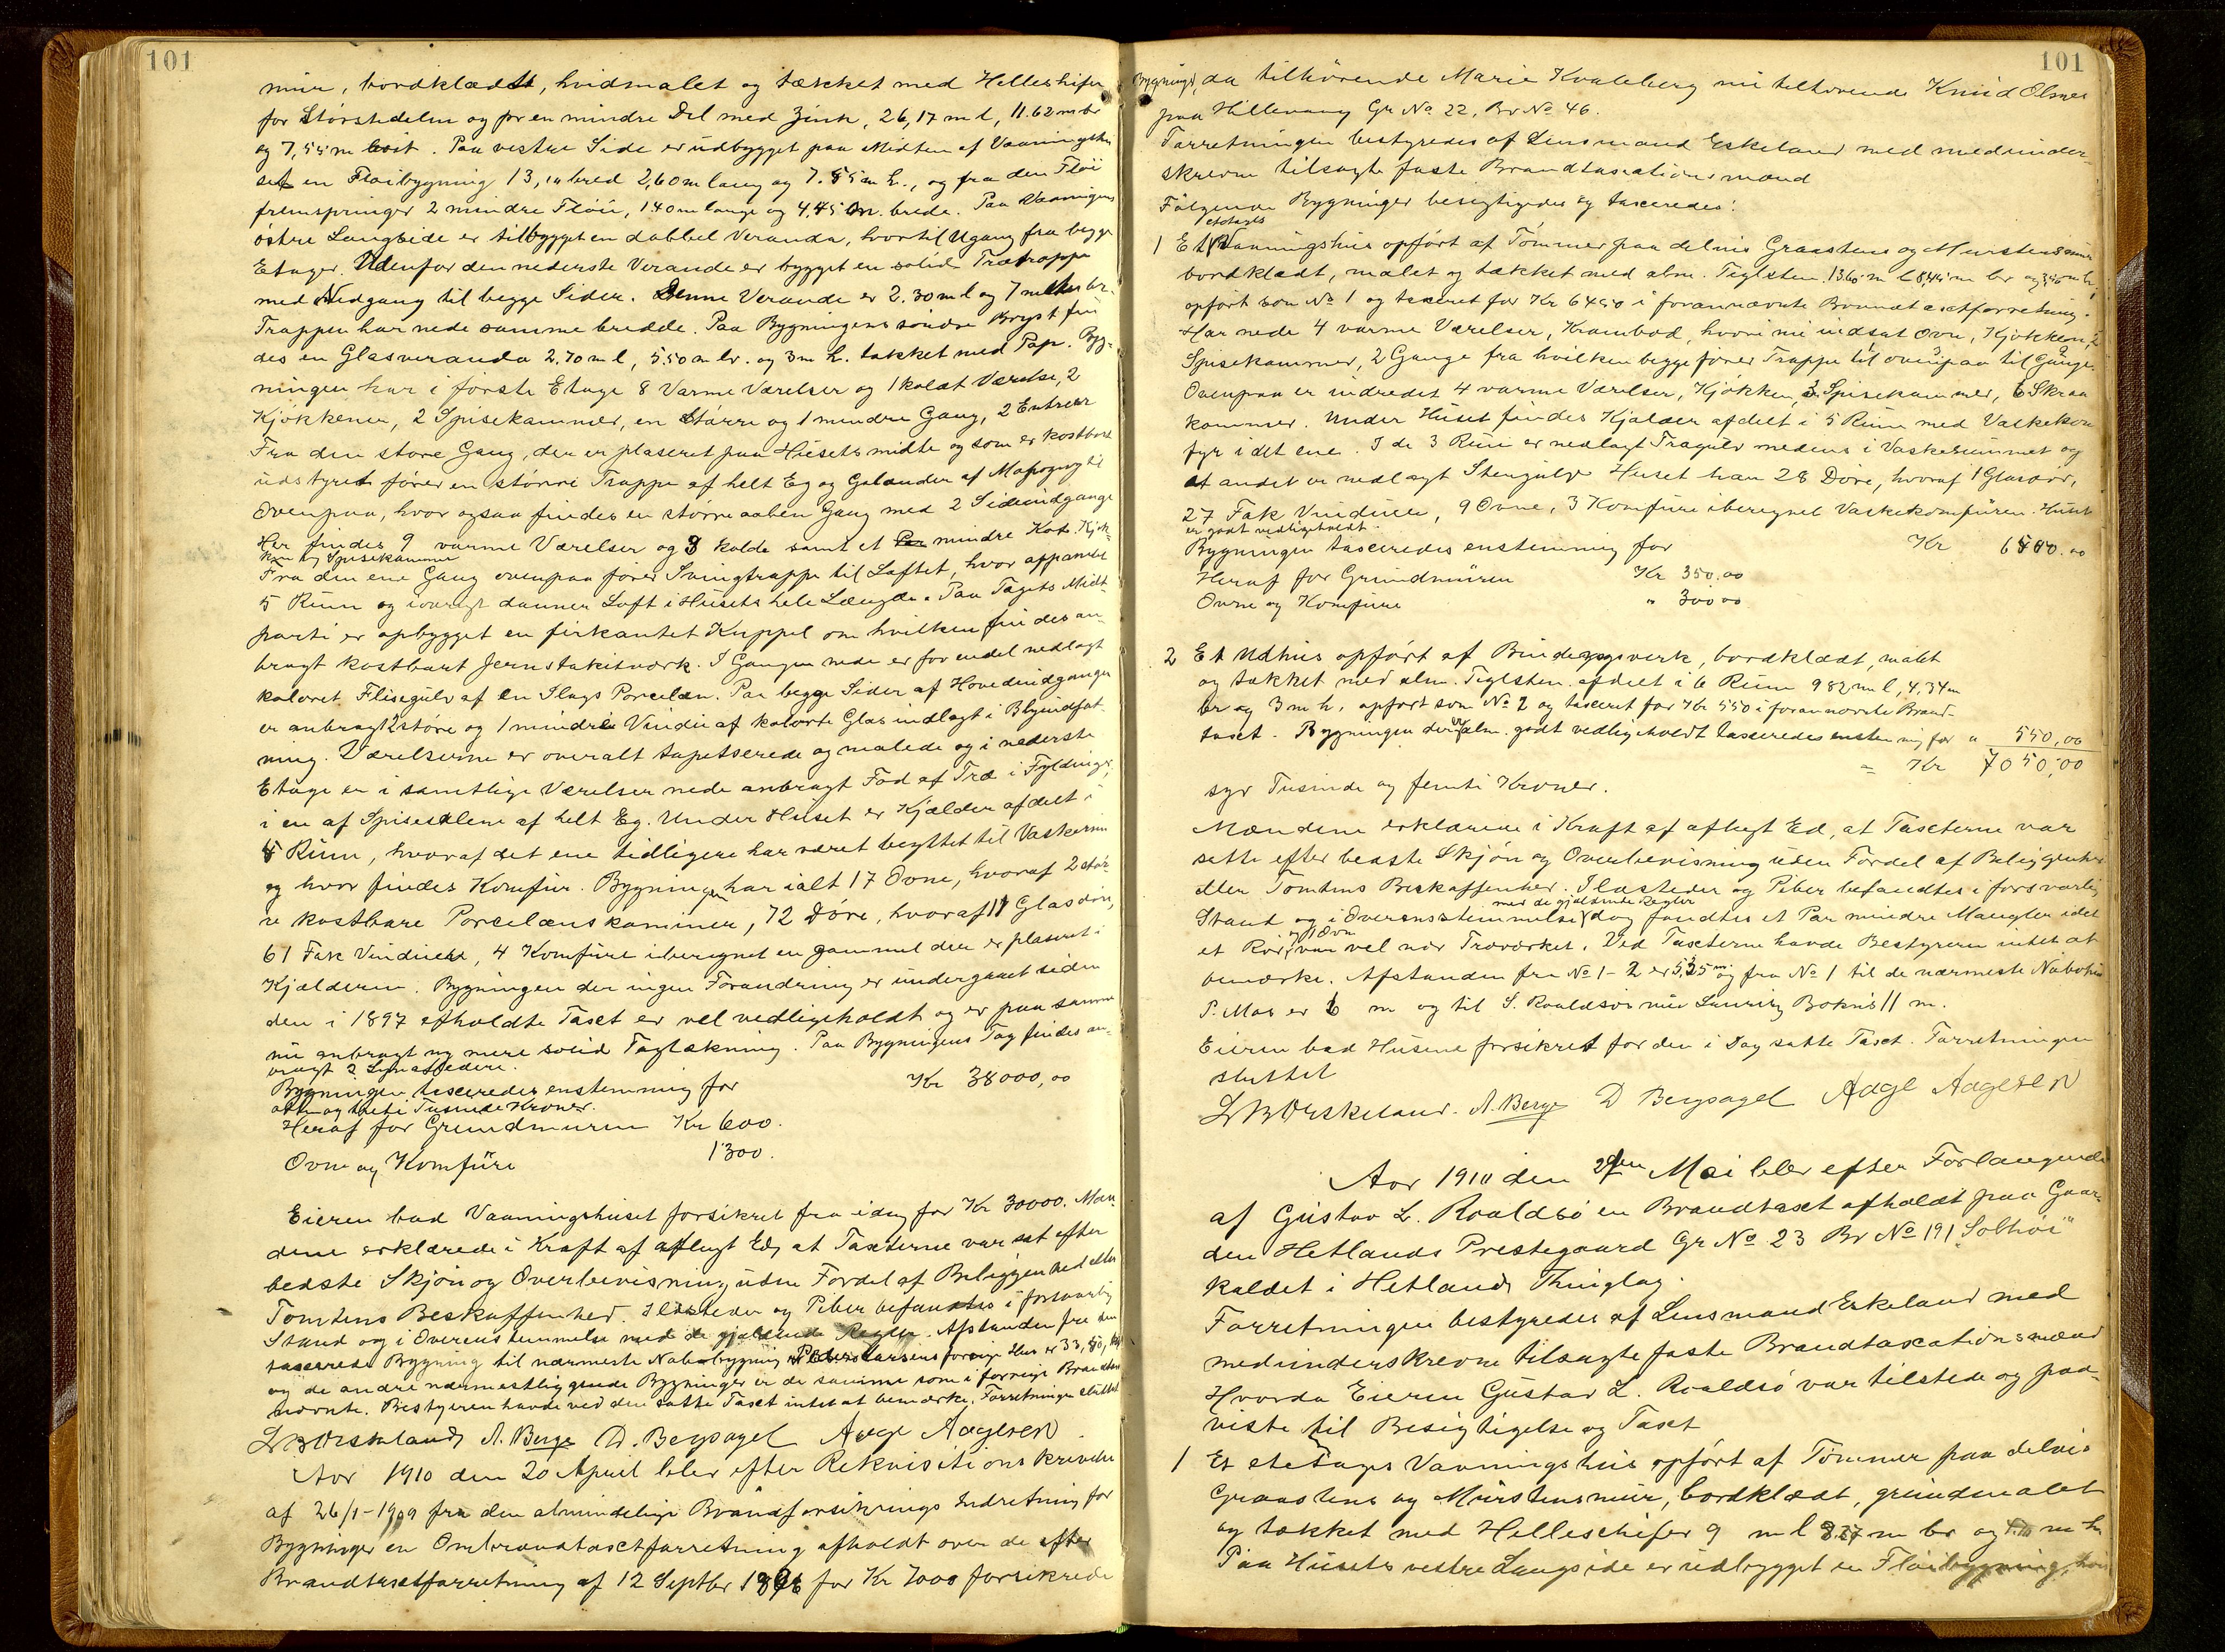 101
mur, bordklædt, hvidmalet og tækket med Helleskifer
for Störstedelen og for en mindre Del med Zink, 26,17 m l, 11.62 m br
og 7,55 m höit. Paa vestre Side er udbygget paa Midten af Vaaningshu
set en Flöibygning 13,10 bred 2,60 m lang og 7.55 m h., og fra den Flöi
fremspringer 2 mindre Flöie, 1.40 m lange og 4,45 m. brede. Paa Vaaningens
östre Langside er tilbygget en dobbel Veranda, hvortil Ugang fra begge
Etager. Udenfor den nederste Verande er bygget en solid Trætrappe
med Nedgang til begge Sider. Denne Verande er 2.30 m l og 7 meter br.
Trappen har nede samme bredde. Paa Bygningens söndre Bryst fin
des en Glasveranda 2.70 m l, 5.50 m br. og 3 m h. tækket med Pap. Byg-
ningen har i förste Etage 8 Varme Værelser og 1 koldt Værelse, 2
Kjökkener, 2 Spisekammer, en Större og 1 mindre Gang, 2 Entreer
Fra den store Gang, der er plaseret paa Husets midte og som er kostbart
udstyret förer en större Trappe af helt Eg og Gelænder af Mahogny til
Ovenpaa, hvor ogsaa findes en större aaben Gang med 2 Sideindgange
Her findes 9 varme Værelser og 3 kolde samt et mindre Kot. Kjök-
ken og Spisekammer
Fra den ene Gang ovenpaa förer Svingtrappe til Loftet, hvor oppandlet
5 Rum og iövrigt danner Loft i Husets hele Længde. Paa Tagets Midt-
parti er opbygget en firkantet Kuppel om hvilken findes an-
bragt kostbart Jernstakitværk. I Gangen nede er for endel nedlagt
koloret Flisegulv af en Slags Porcelæn. Paa begge Sider af Hovedindgangen
er anbragt 2 störe og 1 mindre Vindu af kolorte Glas indlagt i Blyindfat-
ning. Værelserne er overalt tapetserede og malede og i nederste
Etage er i samtlige Værelser nede anbragt Fod af Træ i Fyldinger,
i en af Spisesalene af helt Eg. Under Huset er Kjælder afdelt i
5 Rum, hvoraf det ene tidligere har været benyttet til Vaskerum
og hvor findes Komfur. Bygningen har ialt 17 Ovne, hvoraf 2 stör-
re kostbare Porcelænskaminer, 72 Döre, hvoraf 11 Glasdöre,
61 Fak Vinduer, 4 Komfure iberegnet en gammel der er plaseret i
Kjælderen. Bygningen der ingen Forandring er undergaaet siden
den i 1897 afholdte Taxt er vel vedligeholdt og er paa samme
nu anbragt ny mere solid Tagtækning. Paa Bygningens Tag findes an-
bragt 2 Lynafledere.
Bygningen taxeredes enstemmig for Kr 38000,00
otte og treti Tusinde Kroner.
Heraf for Grundmuren Kr 600.
Ovne og Komfüre 1300.
Eieren bad Vaaningshuset forsikret fra idag for Kr 30000. Mæn-
dene erklærede i Kraft af aflagt Ed, at Taxterne var sat efter
bedste Skjön og Overbevisning uden Fordel af Beliggenhed eller
Tomtens Beskaffenhed. Ildsteder og Piber befandtes i forsvarlig
Stand og i Overensstemmelse med de gjældende Regler. Afstanden fra den
taxerede Bygning til nærmeste Nabobygning Peder Larsens forrige Hus er 33,50
og de andre nærmestliggende Bygninger er de samme som i forrige Brandtaxt
nævnte. Bestyreren havde ved den satte Taxt intet at bemærke. Forretningen sluttet
A. Berge D. Bergsagel Aage Aagesen
Aar 1910 den 20 April blev efter Rekvisitionskrivelse
af 26/1-1909 fra den almindelige Brandforsikrings Indretning for
Bygninger en Ombrandtaxtforretning afholdt over de efter
Brandtaxtforretning af 12 Septbr 1896 for Kr 7000 forsikrede
101
Bygninger, da tilhörende Marie Kvaleberg nu tilhörende Knud Olsnes
paa Hillevaag Gr No 22, Br No 46.
Forretningen bestyredes af Lensmand Eskeland med medunder-
skrevne tilsagte faste Brandtaxationsmænd
Fölgende Bygninger besigtigedes og taxeredes:
etetages
1 Et Vaaningshus opfört af Tömmer paa delvis Graastens og Murstensmur
bordklædt, malet og tækket med alm. Teglsten 13.60 m l 8,45 m br og 5,50 m h,
opfört som No 1 og taxeret for Kr 6450 i forannævnte Brandtaxtforretning.
Har nede 4 varme Værelser, Krambod, hvori nu indsat Ovn, Kjökken, 2
Spisekammer, 2 Gange fra hvilken begge förer Trappe til ovenpaa til Gange
Ovenpaa er indredet 4 varme Værelser, Kjökken, 3 Spisekammer, 6 Skraa
kammer. Under Huset findes Kjælder afdelt i 5 Rum med Vaskekom
fyr i det ene. I de 3 Rum er nedlagt Trægulv medens i Vaskerummet og
et andet er nedlagt Stengulv. Huset har 28 Döre, hvoraf 1 Glasdör,
27 Fak Vinduer, 9 Ovne, 3 Komfure iberegnet Vaskekomfüren. Huset
er godt vedligeholdt.
Bygningen taxeredes enstemmig for Kr 6500.00
Heraf for Grundmüren Kr 350.00
Ovne og Komfure " 300.00
2 Et Udhus opfört af Bindingsverk, bordklædt, malet
og tækket med alm. Teglsten. afdelt i 6 Rum 982 m l, 4,34 m
br og 3 m h, opfört som No 2 og taxeret for Kr 550 i forannævnte Brand-
taxt. Bygningen der er alm. godt vedligeholdt taxeredes enstemmig for " 550,00
= Kr 7050,00
syv Tusinde og femti Kroner.
Mændene erklærede i Kraft af aflagt Ed, at Taxterne var
satte efter bedste Skjön og Overbevisning uden Fordel af Beliggenhed
eller Tomtens Beskaffenhed. Ildsteder og Piber befandtes i forsvarlig
Stand og i Overensstemmelse med de gjældende Regler dog fandtes et Par mindre Mangler idet
et Rör og Ovn var vel nær Træværket. Ved Taxterne havde Bestyreren intet at
bemærke. Afstanden fra No 1-2 er 5,25 m og fra No 1 til de nærmeste Nabohus
P. Mos er 6 m og til S. Roaldsös nu Lauritz Bokns 11 m.
Eieren bad Husene forsikret for den i Dag satte Taxt. Forretningen
sluttet
A. Berge D Bergsagel Aage Aagesen
Aar 1910 den 2den Mai blev efter Forlangende
af Gustav L. Roaldsö en Brandtaxt afholdt paa Gaar-
den Hetlands Prestegaard Gr No 23 Br No 191 "Solhöi"
kaldet i Hetlands Thinglag.
Forretningen bestyredes af Lensmand Eskeland med
medunderskrevne tilsagte faste Brandtaxationsmænd
Hvorda Eieren Gustav L. Roaldsö var tilstede og paa-
viste til Besigtigelse og Taxt
1 Et etetages Vaaningshus opfört af Tömmer paa delvis
Graastens og Murstensmur, bordklædt, grundmalet
og tækket med Helleschifer 9 m l 8.27 m br og m h
Paa Husets vestre Langside er udbygget en Flöibygning,